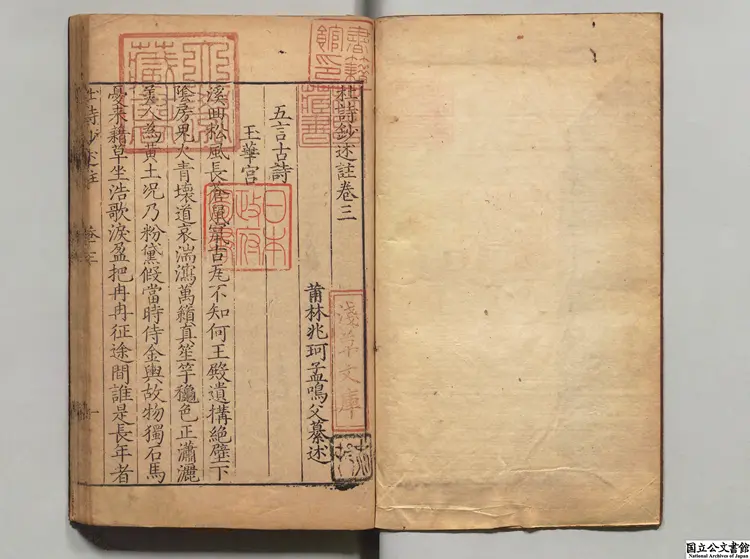 杜詩鈔述註卷三
莆林兆珂孟鳴父纂述
五言古詩
玉華宮
溪回松風長蒼鼠竄古瓦不知何王殿遺搆絕壁下
陰房鬼火青壞道哀湍瀉萬籟真笙竽穐色正瀟灑
美人為黃土况乃粉黛假當時侍金輿故物獨石馬
憂来藉草坐浩歌淚盈把冉冉征途間誰是長年者
杜詩鈔述註 卷三 一
日本政府圖書
淺草文庫
国立公文書館
National Archives of Japan